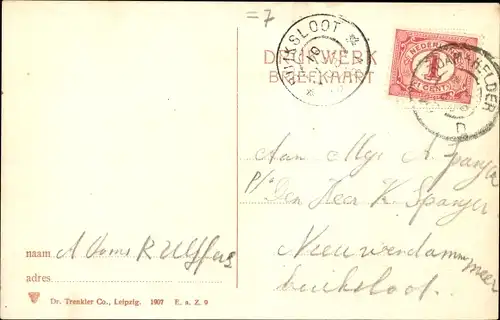 =7
BUIKSLOOT
DRUKWERK
BRIEFKAART
NEDERLAND
1
CENT
HELDER
D
Aan Mej. A. Spanjer
p/a Den Heer K. Spanjer
Nieuwendammer
Buiksloot.
naam
adres
Dr. Trenkler Co., Leipzig. 1907 E. a. Z. 9